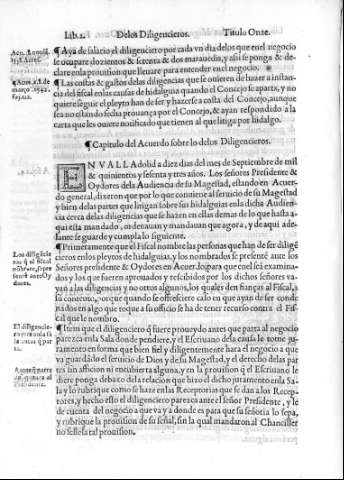 Lib.1. Delos Diligencieros. Titulo Onze.
¶ Aya de salario el diligenciero por cada vn dia delos que en el negocio
se ocupare dozientos & sesenta & dos marauedis, y assi se ponga & de
clare enla prouision que lleuare para entender en el negocio.
¶ Las costas & gastos delas diligencias que se ouieren de hazer a instan-
cia del fiscal enlas causas de hidalguia quando el Concejo se aparta, y no
quiere seguir el pleyto han de ser y hazerse a costa del Concejo, aunque
sea no estando fecha prouança por el Concejo, & ayan respondido a la
carta que les ouiere notificado que tienen al que litiga por hidalgo.
¶ Capitulo del Acuerdo sobre lo delos Diligencieros.
EN VALLAdolid a diez dias del mes de Septiembre de mil
& quinientos y sesenta y tres años. Los señores Presidente &
Oydores dela Audiencia de su Magestad, estando en Acuer-
do general, dixeron que por lo que conuiene al seruicio de su Magestad
y bien delas partes que litigan sobre sus hidalguias enla dicha Audien-
cia cerca delas diligencias que se hazen en ellas demas de lo que hasta a-
qui esta mandado, ordenauan y mandauan que agora, y de aqui ade-
lante se guarde y cumpla lo siguiente.
¶ Primeramente que el Fiscal nombre las personas que han de ser dilige
cieros enlos pleytos de hidalguias, y los nombrados se presente ante los
Señores presidente & Oydores en Acuer.
y los que fueren aprouados y rescibidos por los dichos señores va-
yan a las diligencias y no otros algunos, los quales den fianças al Fiscal, a
su contento, porque quando se offresciere caso en que ayan de ser conde
nados en algo que toque a su officio se ha de tener recurso contra el Fis-
cal que le nombro.
¶ Item que el diligenciero q̃ fuere proueydo antes que parta al negocio
parezca enla Sala donde pendiere, y el Escriuano dela causa le tome ju-
ramento en forma que bien fiel y diligentemente hara el negocio a que
va guardãdo el seruicio de Dios y de su Magestad, y el derecho delas par
tes sin afficion ni encubierta alguna, y en la prouision q̃ el Escriuano le
diere ponga debaxo dela relacion que hizo el dicho juramento enla Sa-
la y lo rubrique como se haze enlas Receptorias que se dan a los Recep-
tores, y hecho esto el diligenciero parezca ante el señor Presidente, y le
de cuenta del negocio a que va y a donde es para que su señoria lo sepa,
y rubrique la prouision de su señal, sin la qual mandaron al Chanciller
no selle la tal prouision.